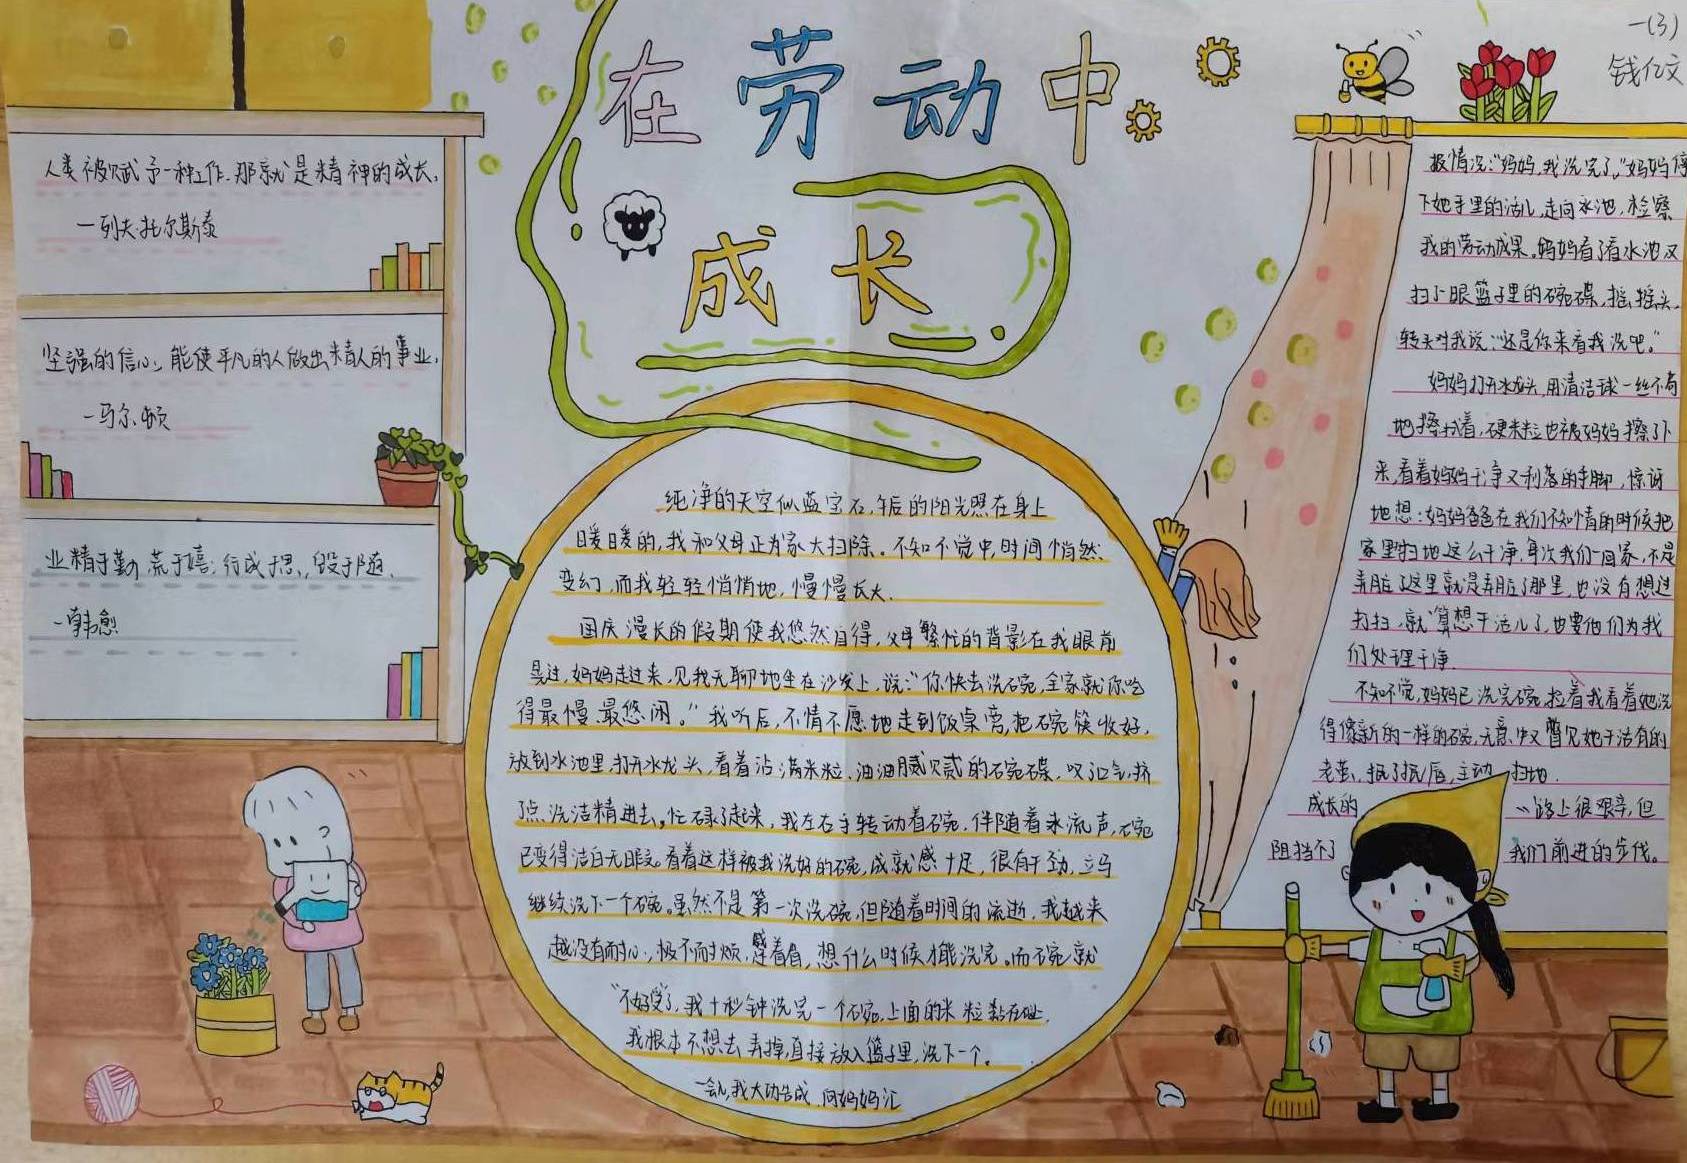 在劳动中
成长
一(3)
钱亿文
人类被赋予一种工作,那就是精神的成长,
—列夫·托尔斯泰
坚强的信心,能使平凡的人做出精人的事业,
—马尔顿
业精于勤,荒于嬉;行成于思,毁于随,
—韩愈
纯净的天空似蓝宝石,午后的阳光照在身上
暖暖的,我和父母正为家大扫除。不知不觉中,时间悄然
变幻,而我轻轻悄悄地,慢慢长大.
国庆漫长的假期使我悠然自得,父母繁忙的背影在我眼前
晃过,妈妈走过来,见我无聊地坐在沙发上,说:“你快去洗碗,全家就你吃
得最慢、最悠闲。”我听后,不情不愿地走到饭桌旁,把碗筷收好,
放到水池里,打开水龙头,看着沾满米粒、油油腻腻的碗碟,叹了口气,挤
了点洗洁精进去,忙碌了起来,我左右手转动着碗,伴随着水流声,碗
已变得洁白无暇,看着这样被我洗好的碗,成就感十足,很有干劲,立马
继续洗下一个碗。虽然不是第一次洗碗,但随着时间的流逝,我越来
越没有耐心,极不耐烦,蹙着眉,想什么时候才能洗完。而碗就
“不好受”了,我十秒钟洗完一个碗,上面的米粒黏在上,
我根本不想去弄掉,直接放入篮子里,洗下一个。
一会儿,我大功告成,向妈妈汇
报情况:“妈妈,我洗完了,”妈妈停
下她手里的活儿,走向水池,检察
我的劳动成果。妈妈看了看水池又
扫了眼篮子里的碗碟,摇摇头,
转头对我说:“还是你来看我洗吧。”
妈妈打开水龙头,用清洁球一丝不苟
地擦拭着,硬米粒也被妈妈擦了下
来,看着妈妈干净又利落的手脚,惊讶
地想:妈妈爸爸在我们不知情的时候把
家里扫地这么干净,每次我们一回家,不是
弄脏了这里就是弄脏了那里,也没有想过
打扫,就算想干活儿了,也要他们为我
们处理干净.
不知不觉,妈妈已洗完碗,捡着我看着她洗
得像新的一样的碗,无意中又瞥见她干活有的
老茧,抿了抿唇,主动 扫地.
成长的 路上很艰辛,但
阻挡不了 我们前进的步伐。